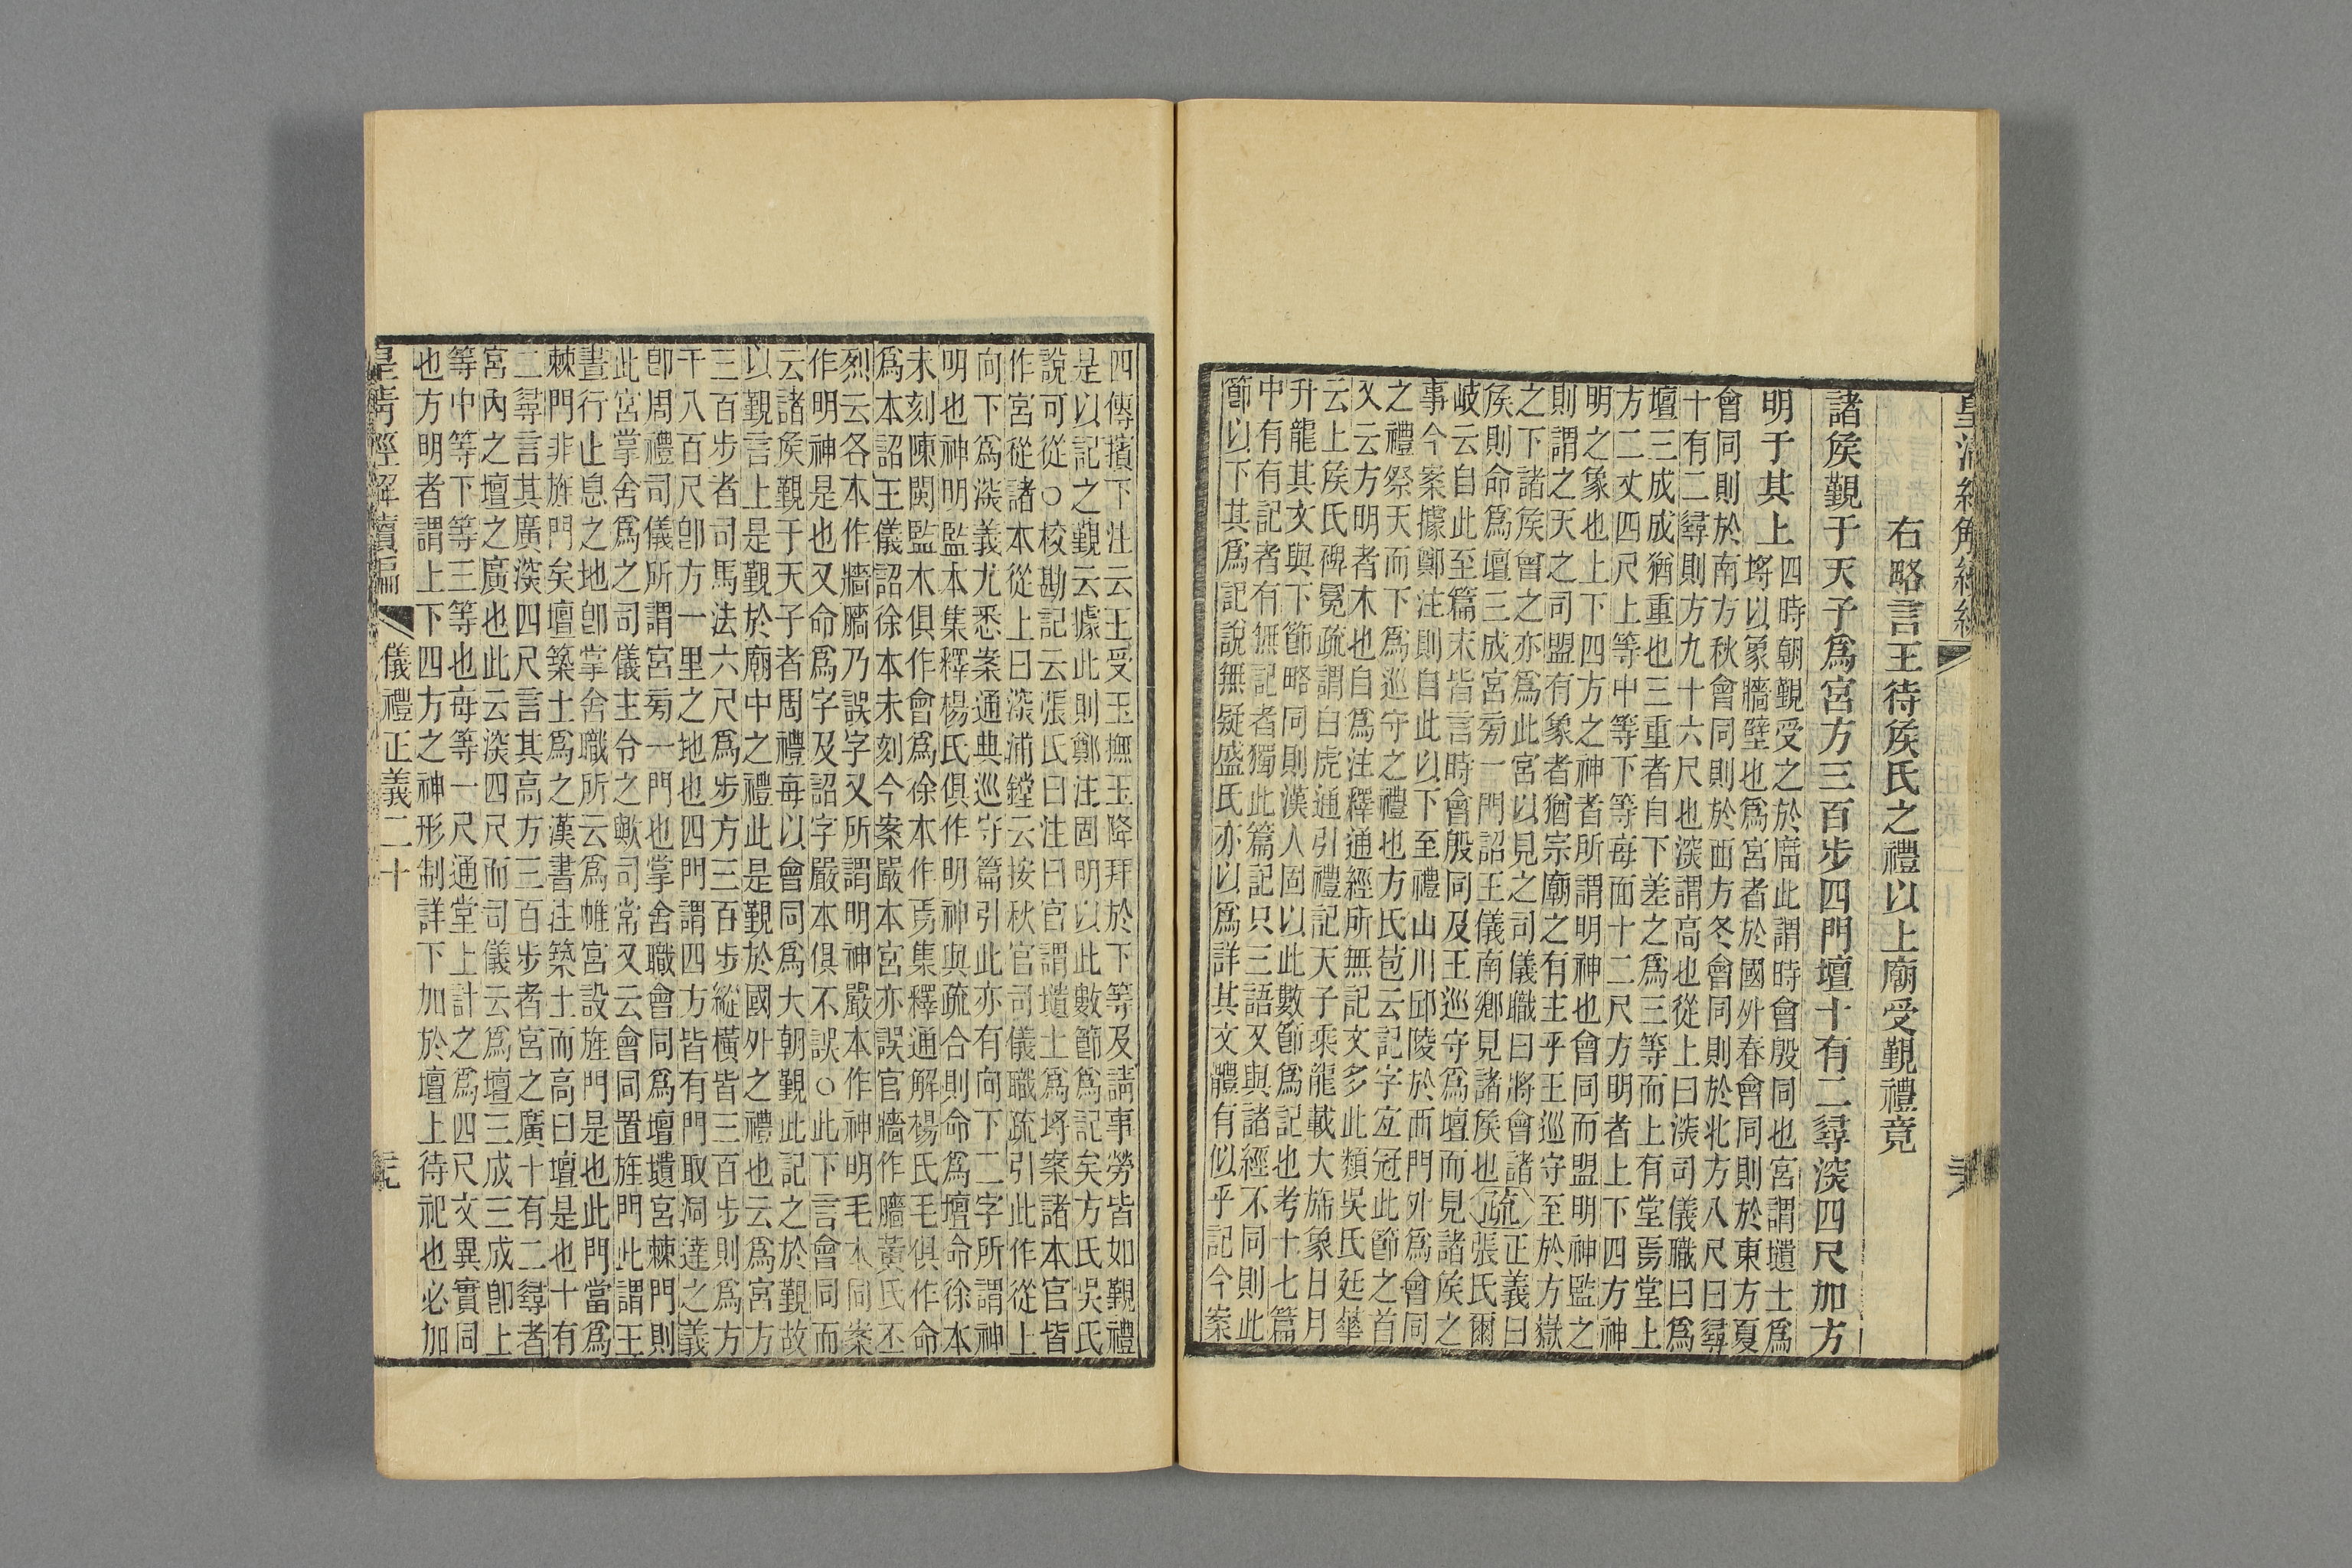 右略言王待矦氏之禮以上廟受覲禮竟
諸矦覲于天子爲宮方三百步四門壇十有二尋深四尺加方
明于其上
四時朝覲受之於廟此謂時會殷同也宮謂壝土爲
埓以象牆壁也爲宮者於國外春會同則於東方夏
會同則於南方秋會同則於西方冬會同則於北方八尺曰尋
十有二尋則方九十六尺也深謂高也從上曰深司儀職曰爲
壇三成成猶重也三重者自下差之爲三等而上有堂焉堂上
方二丈四尺上等中等下等每面十二尺方明者上下四方神
明之象也上下四方之神者所謂明神也會同而盟明神監之
則謂之天之司盟有象者猶宗廟之有主乎王巡守至於方嶽
之下諸矦會之亦爲此宮以見之司儀職曰將會諸
矦則命爲壇三成宮旁一門詔王儀南鄉見諸矦也疏正義曰
岐云自此至篇末皆言時會殷同及王巡守爲壇而見諸矦之張氏爾
事今案據鄭注則自此以下至禮山川邱陵於西門外爲會同
之禮祭天而下爲巡守之禮也方氏苞云記字宜冠此節之首
又云方明者木也自爲注釋通經所無記文多此類吳氏廷華
云上矦氏裨冕疏謂白虎通引禮記天子乘龍載大旂象日月
升龍其文與下節略同則漢人固以此數節爲記也考十七篇
中有有記者有無記者獨此篇記只三語又與諸經不同則此
節以下其爲記說無疑盛氏亦以爲詳其文體有似乎記今案
四傳擯下注云王受玉撫玉降拜於下等及請事勞皆如覲禮
是以記之覲云據此則鄭注固明以此數節爲記矣方氏吳氏
說可從○校勘記云張氏曰注曰宮謂壝土爲埓案諸本官皆
作宮從諸本從上曰深浦鏜云按秋官司儀職疏引此作從上
向下爲深義尤悉案通典巡守篇引此亦有向下二字所謂神
明也神明監本集釋楊氏俱作明神與疏合則命爲壇命徐本
未刻陳閩監木俱作會爲徐本作焉集釋通解楊氏毛俱作命
爲本詔王儀詔徐本未刻今案嚴本宮亦誤官牆作牆黃氏丕
烈云各本作牆牆乃誤字又所謂明神嚴本作神明毛本同案
作明神是也又命爲字及詔字嚴本俱不誤○此下言會同而
云諸矦覲于天子者周禮每以會同爲大朝覲此記之於覲故
以覲言上是覲於廟中之禮此是覲於國外之禮也云爲宮方
三百步者司馬法六尺爲步方三百步縱橫皆三百步則爲方
千八百尺卽方一里之地也四門謂四方皆有門取洞達之義
卽周禮司儀所謂宮旁一門也掌舍職會同爲壇壝宮棘門則
此宮掌舍爲之司儀主令之歟司常又云會同置旌門此謂王
晝行止息之地卽掌舍職所云爲帷宮設旌門是也此門當爲
棘門非旌門矣壇築土爲之漢書注築土而高曰壇是也十有
二尋言其廣深四尺言其高方三百步者宮之廣十有二尋者
宮內之壇之廣也此云深四尺而司儀云爲壇三成三成卽上
等中等下等三等也每等一尺通堂上計之爲四尺文異實同
也方明者謂上下四方之神形制詳下加於壇上待祀也必加
皇淸經解續編
儀禮正義二十